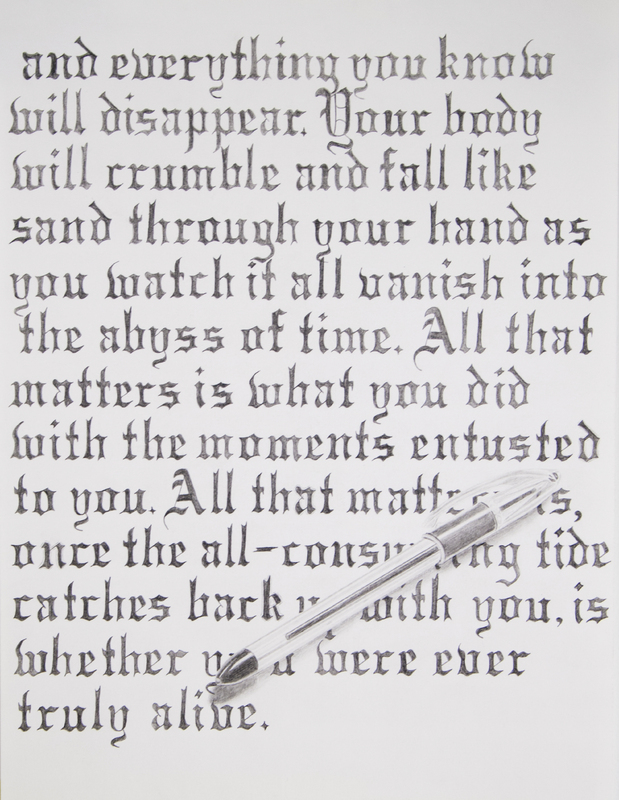 and everything you know
will disappear. Your body
will crumble and fall like
sand through your hand as
you watch it all vanish into
the abyss of time. All that
matters is what you did
with the moments entusted
to you. All that matters is,
once the all-consuming tide
catches back up with you, is
whether you were ever
truly alive.